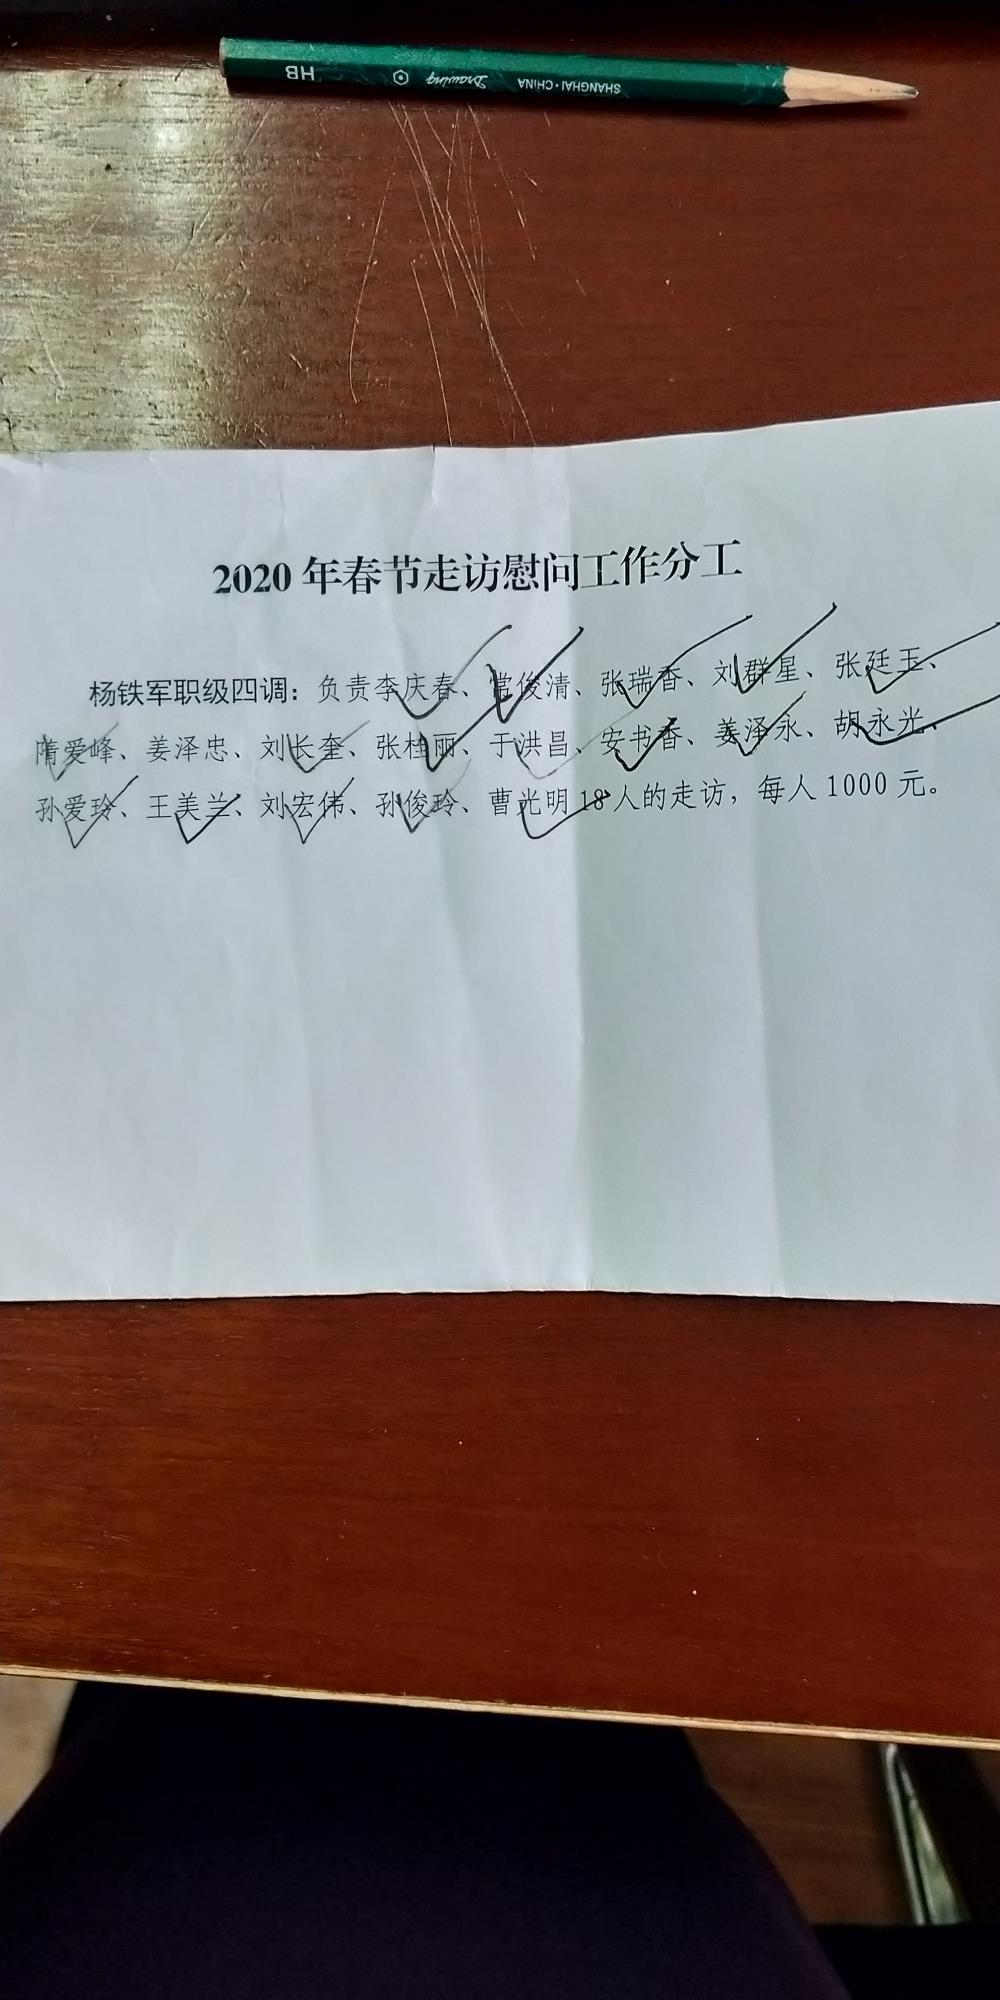 HB Drawing SHANGHAI·CHINA
2020 年春节走访慰问工作分工
杨铁军职级四调：负责李庆春、常俊清、张瑞香、刘群星、张廷玉、
隋爱峰、姜泽忠、刘长奎、张桂丽、于洪昌、安书香、姜泽永、胡永光、
孙爱玲、王美兰、刘宏伟、孙俊玲、曹光明 18 人的走访，每人 1000 元。